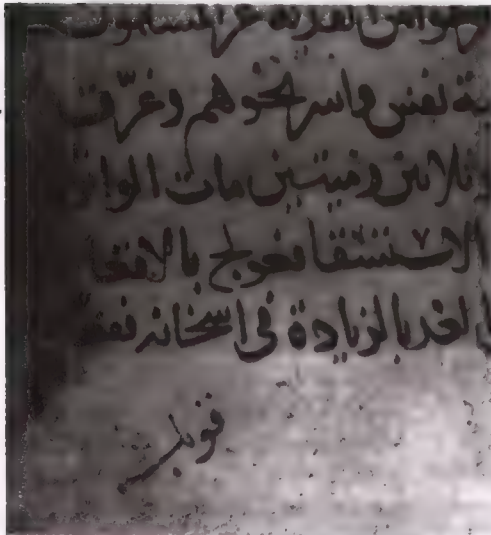 ئة نفس واسر نحوهم وغرّق
ثلاثين وميتين مات الوا
الاستسقا فعولج بالاقعا
لغد بالزيادة في اسخانه فقعد
قوبل